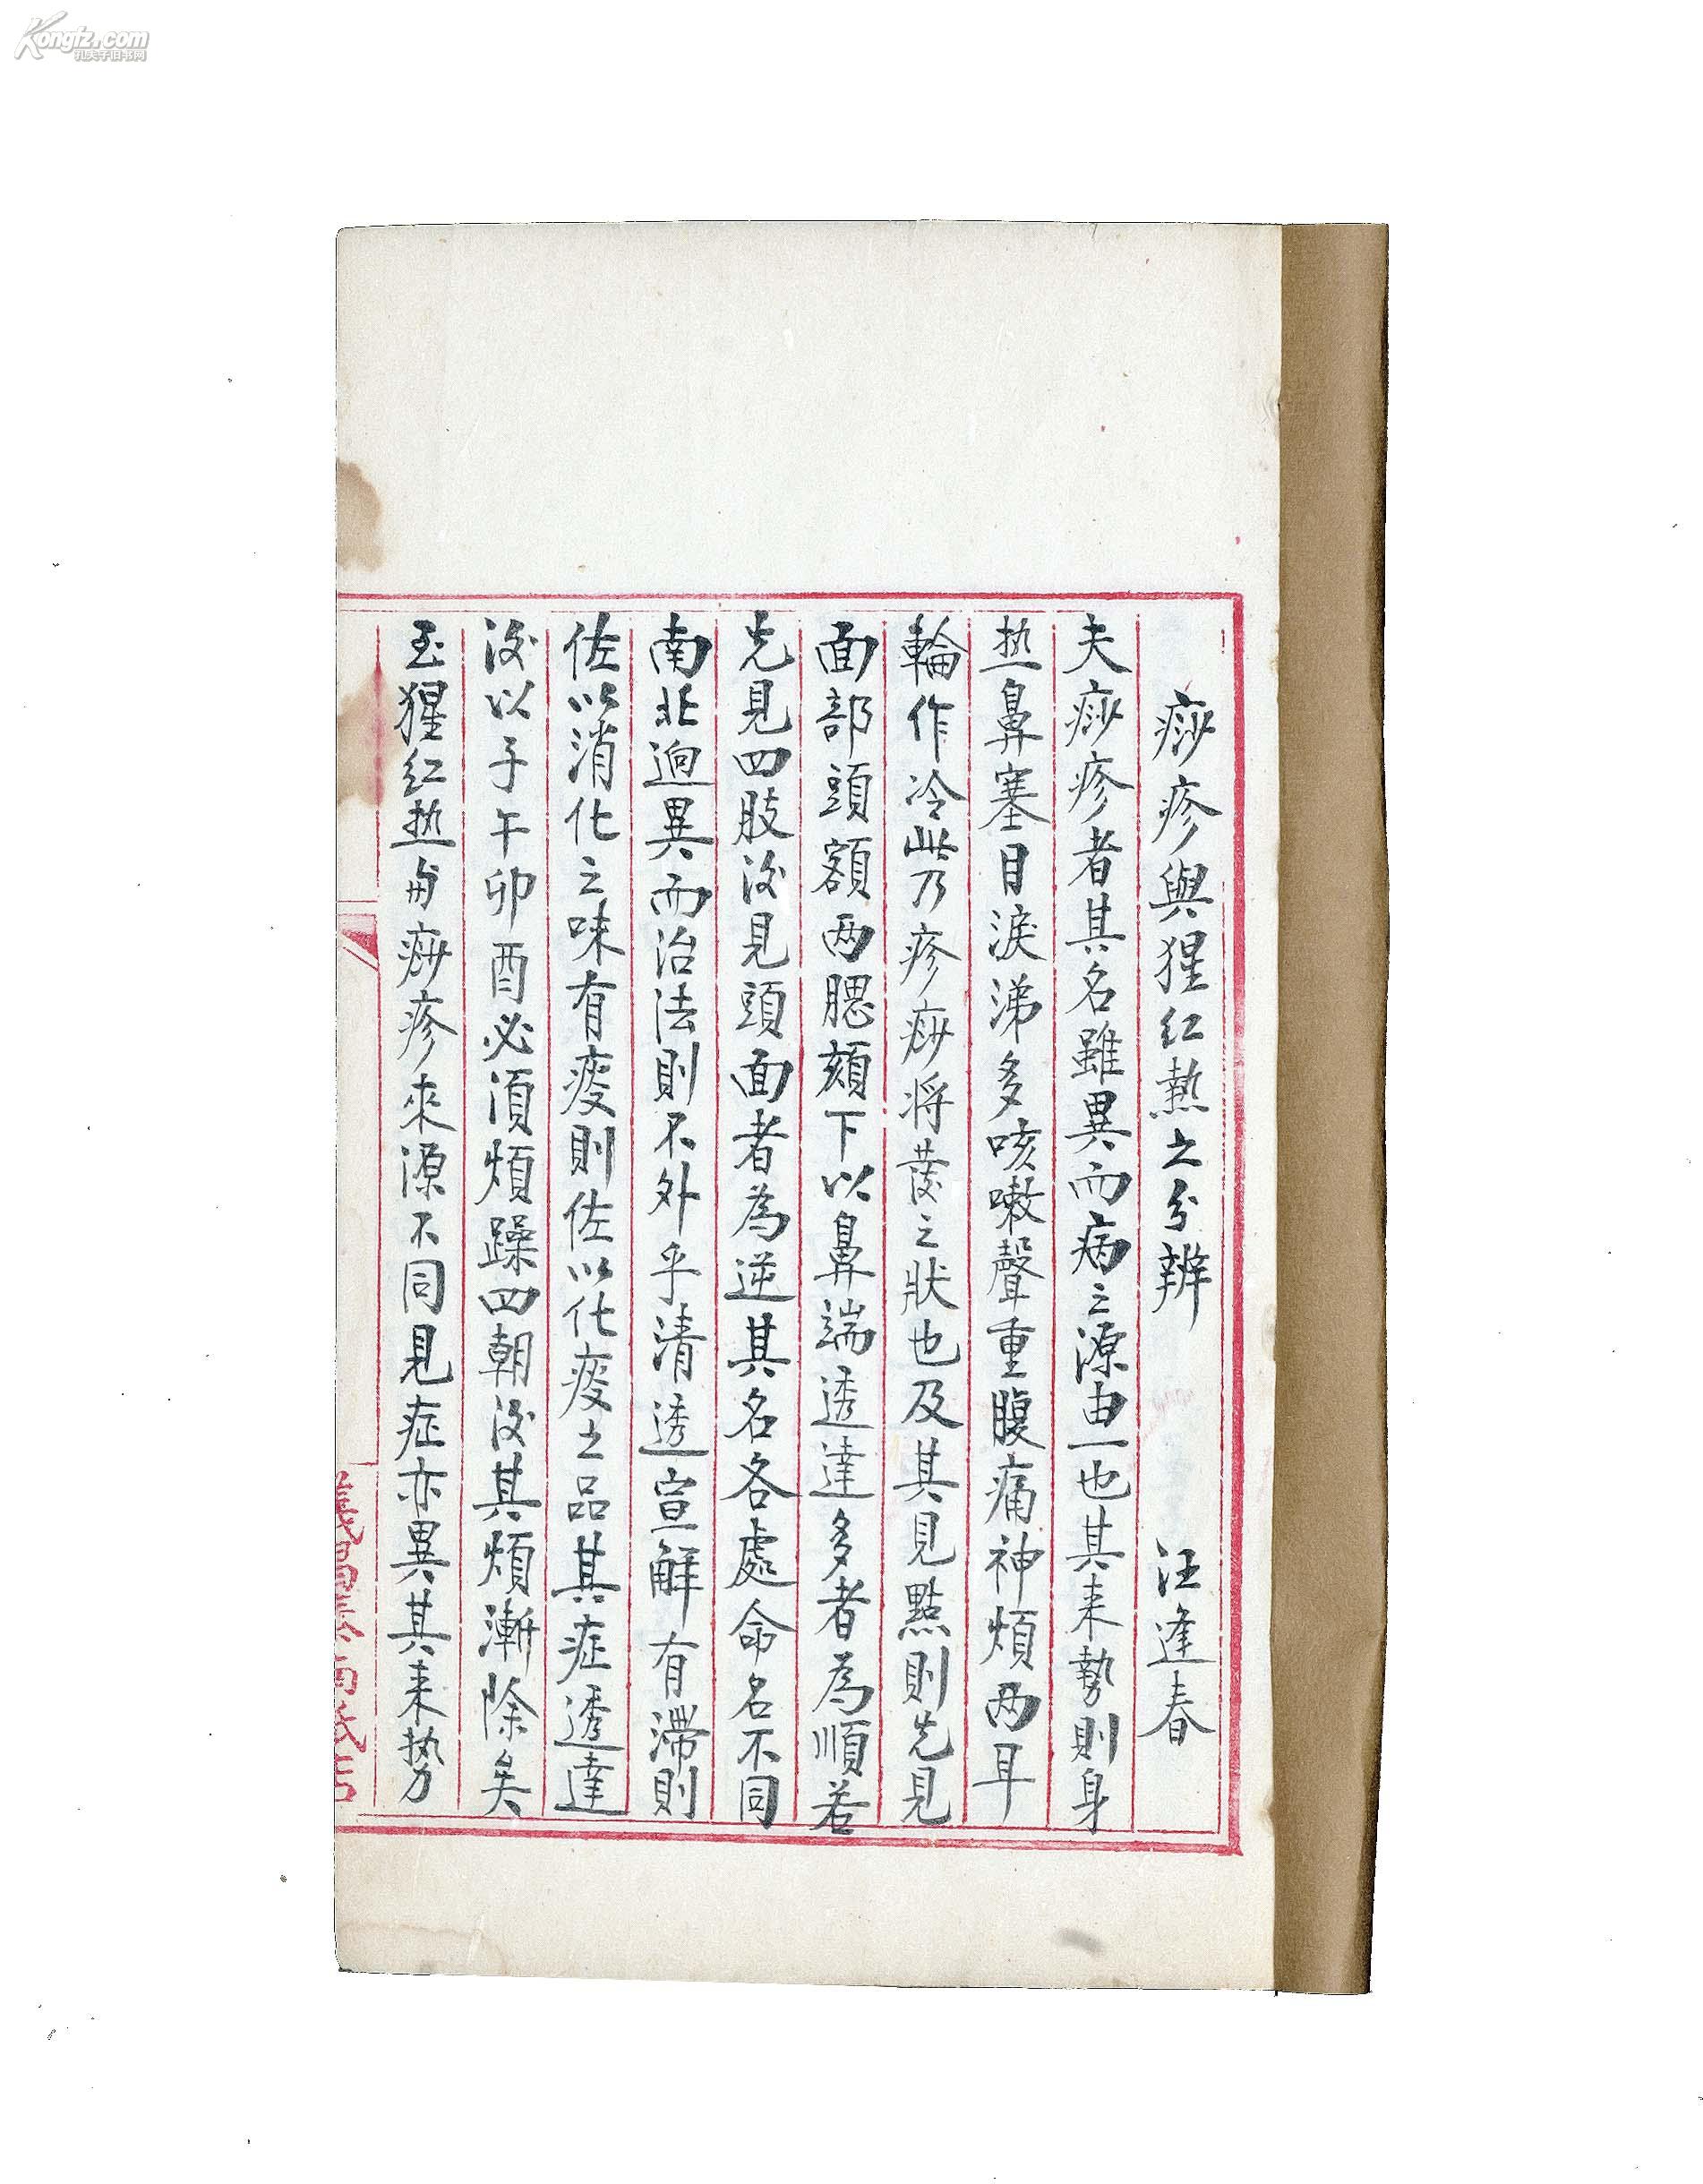 痧疹與猩红熱之分辨 汪逢春
夫痧疹者其名雖異而病之源由一也其来勢則身
热鼻塞目淚涕多咳嗽聲重腹痛神煩两耳
輪作冷此乃疹痧将發之狀也及其見點則先見
面部頭額两腮頦下以鼻端透達多者為順若
先見四肢後見頭面者為逆其名各處命名不同
南北迥異而治法則不外乎清透宣解有滯則
佐以消化之味有痰則佐以化痰之品其症透達
後以子午卯酉必須煩躁四朝後其煩漸除矣
至猩红热与痧疹來源不同見症亦異其来势
Kongfz.com
孔夫子旧书网